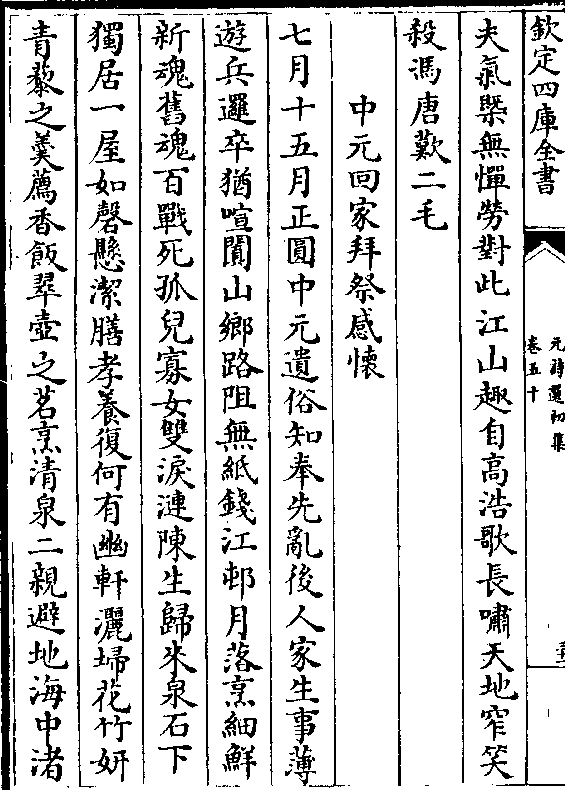 欽定四庫全書
元詩選初集
卷五十
夫氣槩無憚勞對此江山趣自高浩歌長嘯天地窄笑
殺馮唐歎二毛
中元回家拜祭感懷
七月十五月正圓中元遺俗知奉先亂後人家生事薄
遊兵邏卒猶喧闐山鄉路阻無紙錢江邨月落烹細鮮
新魂舊魂百戰死孤兒寡女雙淚漣陳生歸來泉石下
獨居一屋如磬懸潔膳孝養復何有幽軒灑埽花竹妍
青藜之羮薦香飯翠壺之茗烹清泉二親避地海中渚